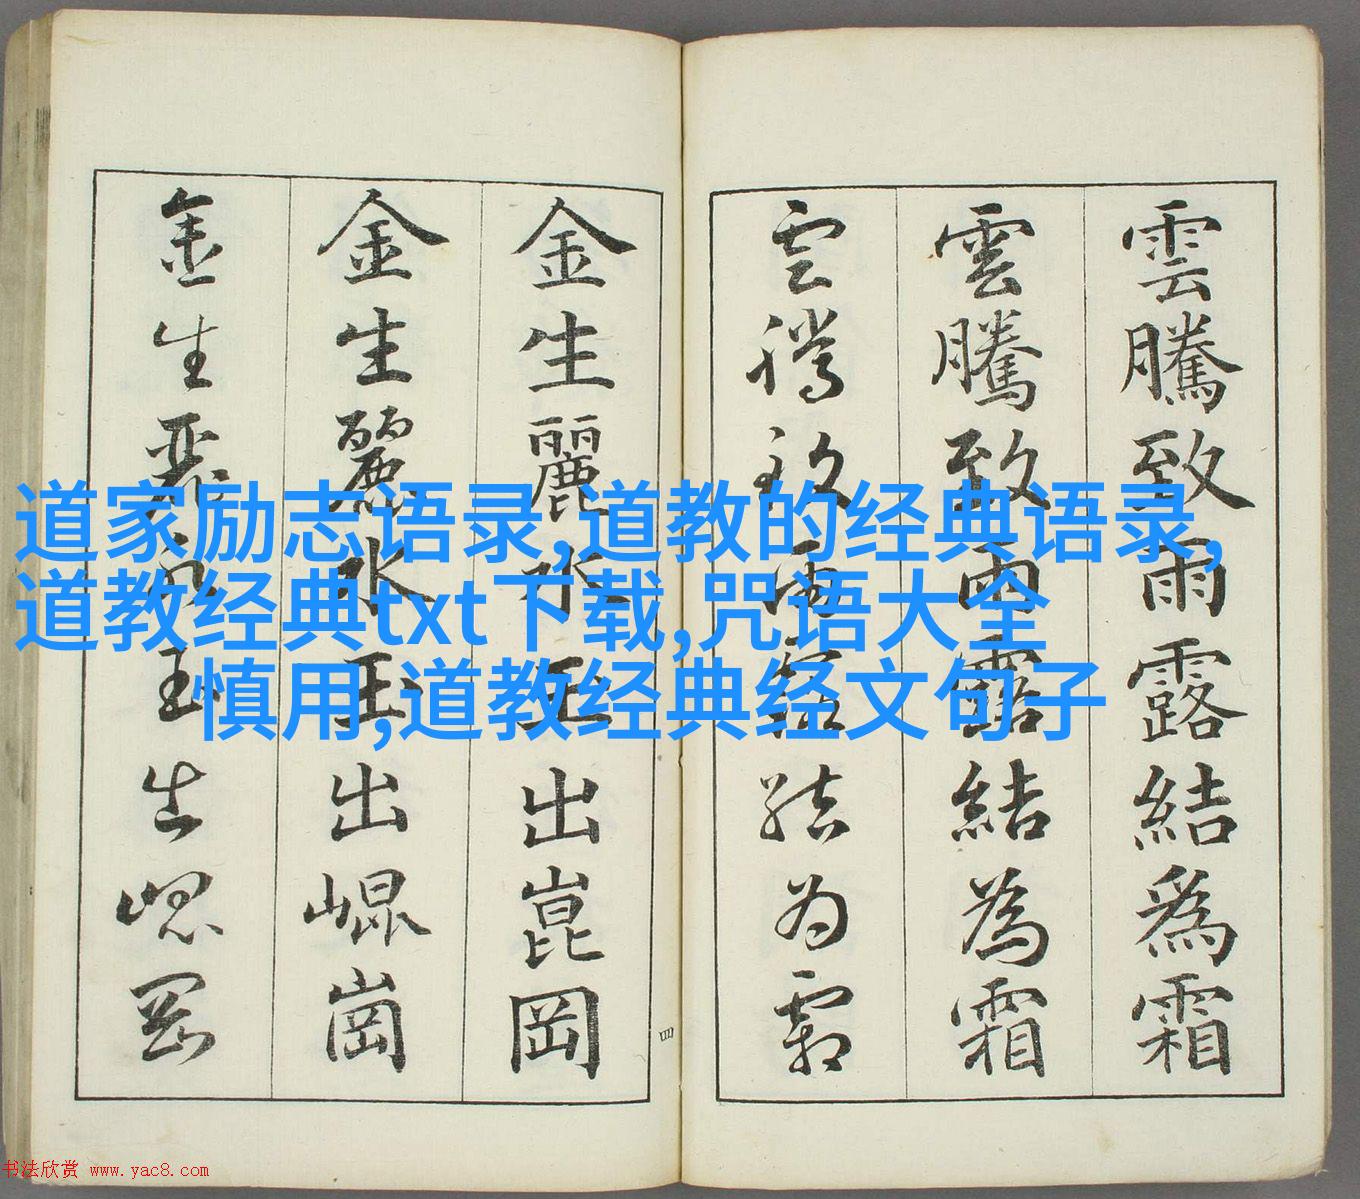 雲騰致雨露結爲霜
雲騰致雨露結為霜
雲騰致雨露結为霜
金生麗水玉出崑岡
金生麗水玉出崐崗
金生麗水玉出崐岡
四
道家励志语录,道教的经典语录,
道教经典txt下载,咒语大全
慎用,道教经典经文句子
书法欣赏 www.yac8.com